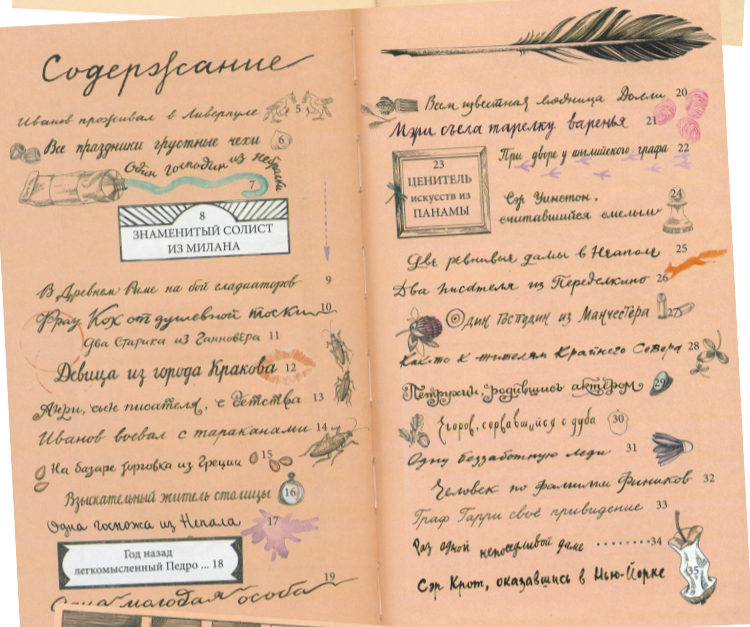 Содержание
Иванов проживал в Ливерпуле 5
Все праздники грустные чехи 6
Один господин из Небраски
7
8
ЗНАМЕНИТЫЙ СОЛИСТ
ИЗ МИЛАНА
В Древнем Риме на бой гладиаторов 9
Фрау Кох от душевной тоски 10
Два старика из Ганновера 11
Девица из города Кракова 12
Анри, сын писателя, с детства 13
Иванов воевал с тараканами 14
На базаре торговка из Греции 15
Взыскательный житель столицы 16
Одна госпожа из Непала 17
Год назад
легкомысленный Педро ... 18
Одна молодая особа 19
Всем известная модница Долли 20
Мэри съела тарелку варенья 21
При дворе у английского графа 22
23
ЦЕНИТЕЛЬ
искусств из
ПАНАМЫ
Сэр Уинстон,
считавшийся смелым 24
Две ревнивые дамы в Неаполе 25
Два писателя из Переделкино 26
Один господин из Манчестера 27
Как-то к жителям Крайнего Севера 28
Петрухин, родившись актёром 29
Егоров, сорвавшийся с дуба 30
Одну беззаботную леди 31
Человек по фамилии Фиников 32
Граф Гарри своё привидение 33
Раз одной непоседливой даме ........ 34
Сэр Крот, оказавшись в Нью-Йорке 35